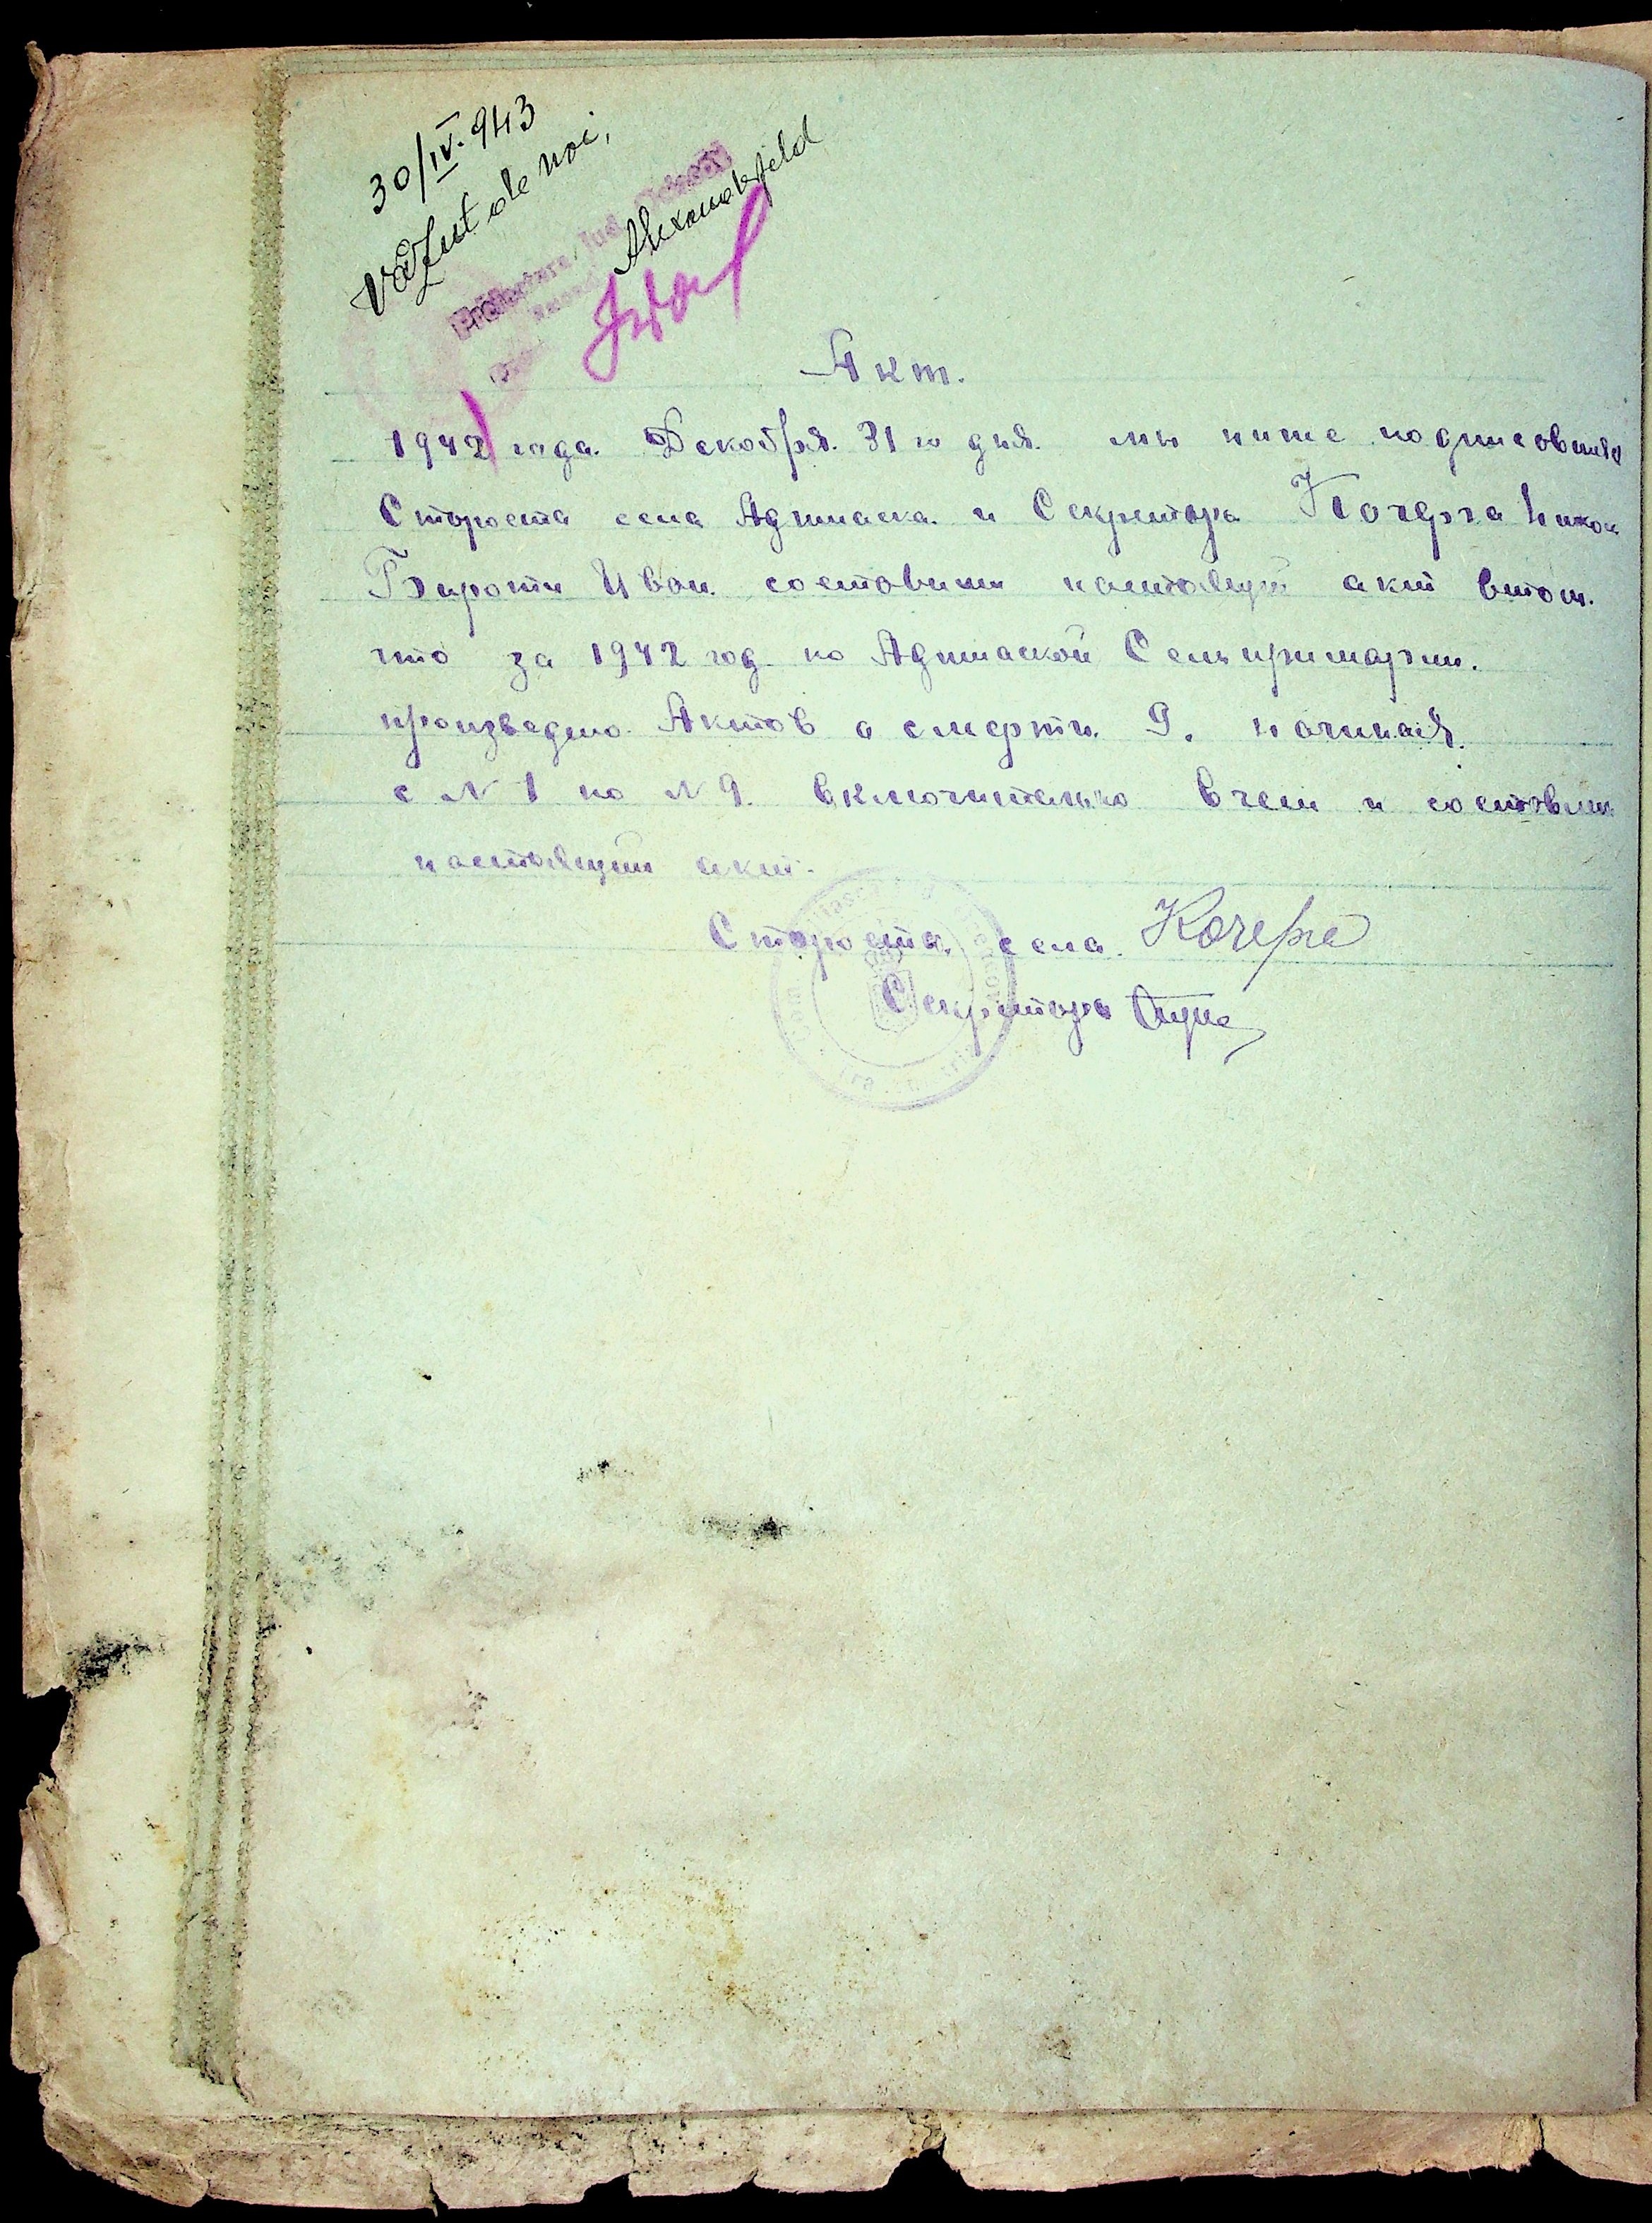 30/IV.943
Văzut de noi,
Prefectura Jud.
Alexanderfeld
Акт.
1942 года. Декобря. 31 го дня. мы ниже подписовшия
Староста села Аджиаска. и Секретарь Кочерга Никол
Бироти Иван. составили настоящий акт втом.
что за 1942 год по Аджиаской Сельпримарии.
произведено Актов о смерти. 9. начиная.
с N 1 по N 9. включительно В чем и составили
настоящий акт.
Староста. села. Кочерга
Секретарь